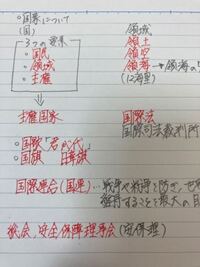 ○国家について
(国)
3つの要素
○国民
○領域
○主権
⇓
主権国家
○国歌「君が代」
○国旗 日章旗
領域
領土
領空
領海→領海の
(12海里)
国際法
国際司法裁判所
国際連合(国連)…戦争や紛争を防ぎ、世
維持することを最大の目
総会、安全保障理事会(安保理)